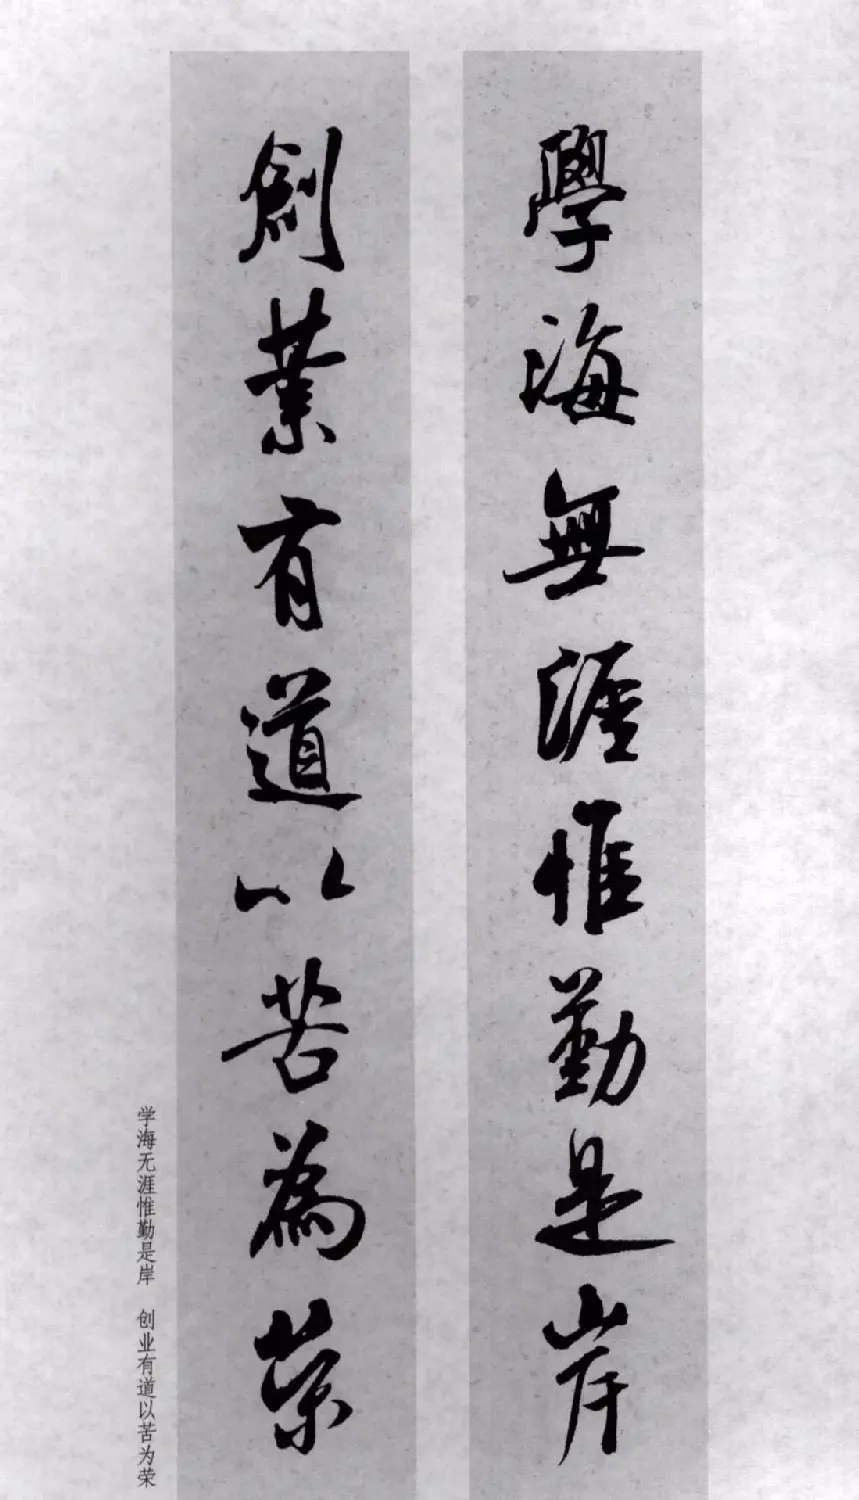 學海無涯惟勤是岸
創業有道以苦為榮
学海无涯惟勤是岸 创业有道以苦为荣